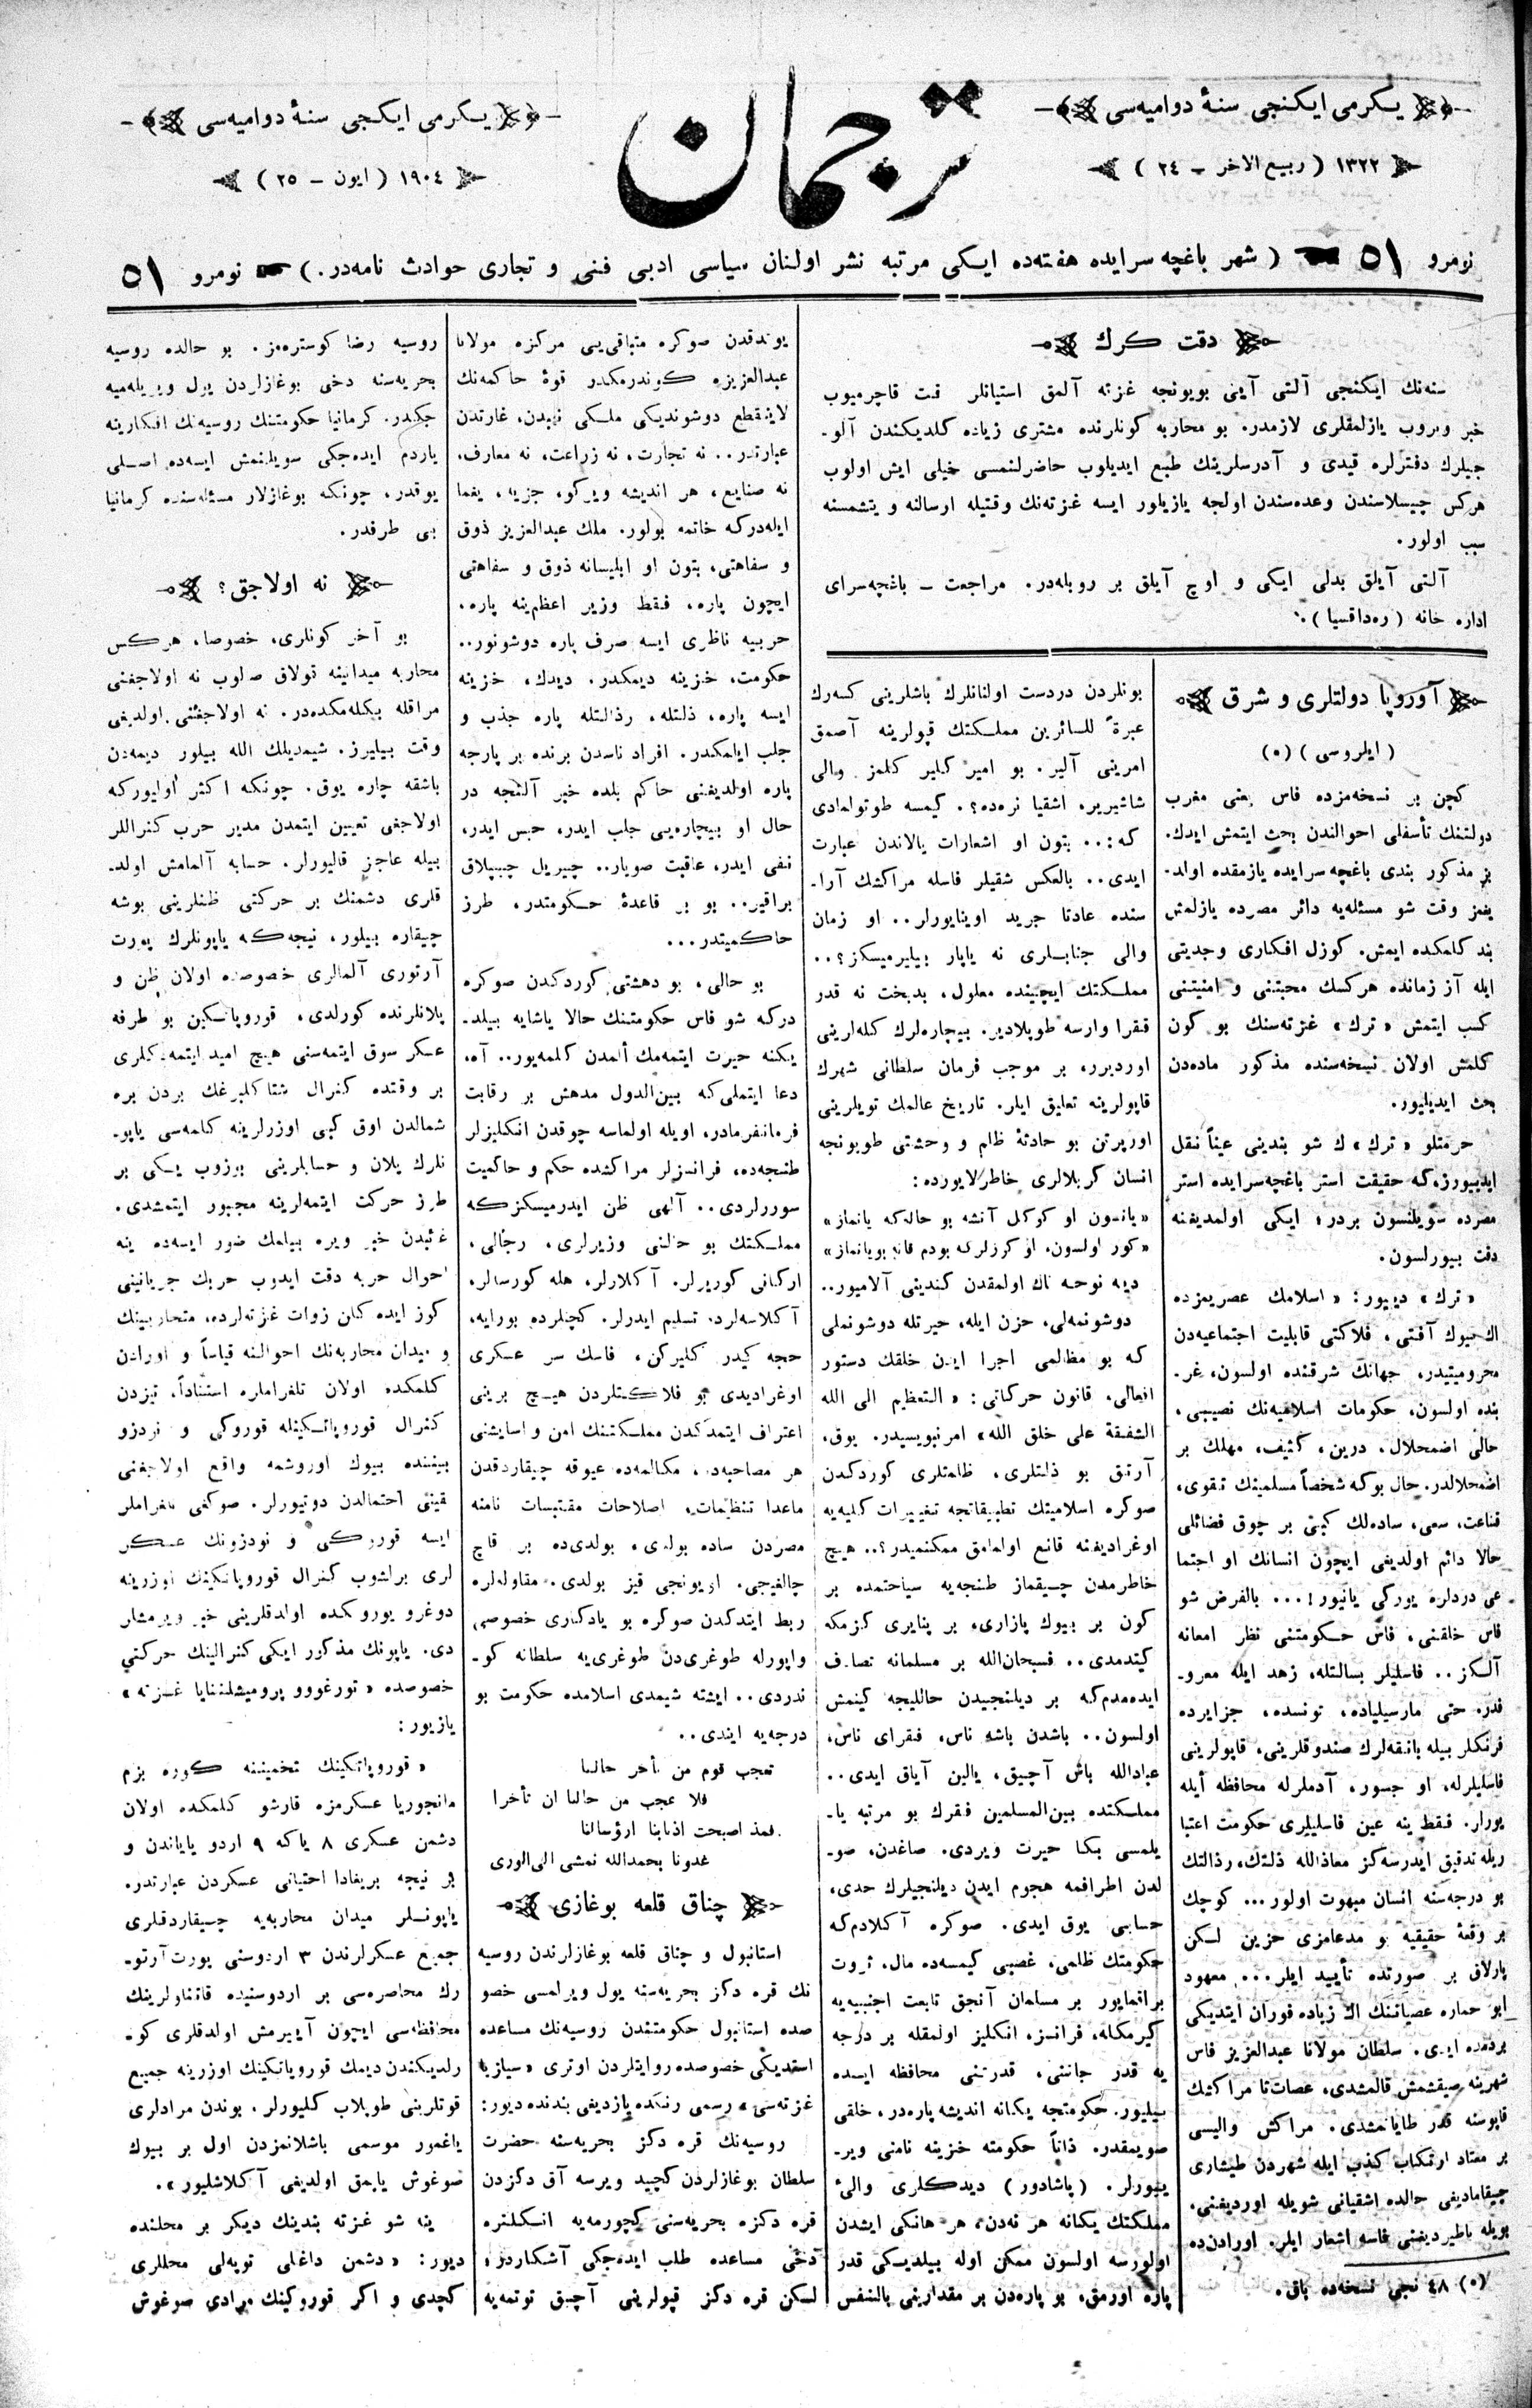 يكرمی ايكنجی سنهٔ دواميه‌سی
١٣٢٢ ( ربيع الاخر ـ ٢٤ )
ترجمان
يكرمی ايكنجی سنهٔ دواميه‌سی
١٩٠٤ ( ايون ـ ٢٥ )
نومرو ٥١ ( شهر باغچه سرايده هفته‌ده ايكی مرتبه نشر اولنان سياسی ادبی فنی و تجاری حوادث نامه‌در. ) نومرو ٥١
دقت كرك
سنه‌نك ايكنجی آلتی آينی بويونجه غزته آلمق استيانلر قت قاچرميوب
خبر ويروب يازلمقلری لازمدر. بو محاربه كونلرنده مشتری زياده كلديكندن آلو-
جيلرك دفترلره قيدی و آدرسلرينك طبع ايديلوب حاضرلنمسی خيلی ايش اولوب
هركس چيسلاسندن وعده‌سندن اولجه يازيلور ايسه غزته‌نك وقتيله ارسالنه و يتشمسنه
سبب اولور.
آلتی آيلق بدلی ايكی و اوچ آيلق بر روبله‌در. مراجعت ـ باغچه‌سرای
اداره خانه ( ره‌داقسيا ).
آوروپا دولتلری و شرق
( ايلروسی ) (٥)
كچن بر نسخه‌مزده فاس يعنی مغرب
دولتنك تأسفلی احوالندن بحث ايتمش ايدك.
بز مذكور بندی باغچه سرايده يازمقده اولد-
يغمز وقت شو مسئله‌يه دائر مصرده يازلمش
بند كلمكده ايمش. كوزل افكاری وجديتی
ايله آز زمانده هركسك محبتنی و امنيتنی
كسب ايتمش « ترك » غزته‌سنك بو كون
كلمش اولان نسخه‌سنده مذكور ماده‌دن
بحث ايديليور.
حرمتلو « ترك » ك شو بندينی عيناً نقل
ايدييورز، كه حقيقت استر باغچه‌سرايده استر
مصرده سويلنسون بردر؛ ايكی اولمديغنه
دقت بيورلسون.
« ترك » دييور: « اسلامك عصريمزده
اك بيوك آفتی، فلاكتی قابليت اجتماعيه‌دن
محروميتيدر، جهانك شرقنده اولسون، غر-
بنده اولسون، حكومات اسلاميه‌نك نصيبی،
حالی اضمحلال، درين، كثيف، مهلك بر
اضمحلالدر. حال بوكه شخصاً مسلمينك تقوی،
قناعت، سعی، ساده‌لك كبی بر چوق فضائلی
حالا دائم اولديغی ايچون انسانك او اجتما
عی دردلره يوركی يانيور!... بالفرض شو
فاس خلقنی، فاس حكومتنی نظر امعانه
آلكز.. فاسليلر بسالتله، زهد ايله معرو-
فدر. حتی مارسيلياده، تونسده، جزايرده
فرنكلر بيله بانقه‌لرك صندوقلرينی، قاپولرينی
فاسليلرله، او جسور، آدملرله محافظه ايله
يورلر. فقط ينه عين فاسليلری حكومت اعتبا
ريله تدقيق ايدرسه‌كز معاذالله ذلتك، رذالتك
بو درجه‌سنه انسان مبهوت اولور... كوچك
بر وقعهٔ حقيقيه بو مدعامزی حزين لكن
پارلاق بر صورتده تأييد ايلر... معهود
ابو حماره عصياننك اك زياده فوران ايتديكی
بردمده ايدی. سلطان مولانا عبدالعزيز فاس
شهرينه صيقشمش قالمشدی، عصات تا مراكشك
قاپوسنه قدر طايانمشدی. مراكش واليسی
بر معتاد ارتكاب كذب ايله شهردن طيشاری
چيقاماديغی حالده اشقيانی شويله اورديغنی،
بويله باطيرديغنی فاسه اشعار ايلر. اورادن‌ده
(٥) ٤٨ نجی نسخه‌ده باق.
بونلردن دردست اولنانلرك باشلرينی كسه‌رك
عبرةً للسائرين مملكتك قپولرينه آصمق
امرينی آلير. بو امير كلير كلمز والی
شاشيرير. اشقيا نره‌ده؟. كيمسه طوتولمادی
كه!.. بتون او اشعارات يالاندن عبارت
ايدی.. بالعكس شقيلر فاسله مراكشك آرا-
سنده عادتا جريد اوينايورلر.. او زمان
والی جنابلری نه ياپار بيليرميسكز؟..
مملكتك ايچينده معلول، بدبخت نه قدر
فقرا وارسه طوپلادير. بيچاره‌لرك كله‌لرينی
اورديرر، بر موجب فرمان سلطانی شهرك
قاپولرينه تعليق ايلر. تاريخ عالمك تويلرينی
اورپرتن بو حادثهٔ ظلم و وحشتی طويونجه
انسان كربلالری خاطرلايورده:
« يانسون او كوكل آتشه بو حاله كه يانماز »
« كور اولسون، او كوزلركه بودم قانه بويانماز »
ديه نوحه ناك اولمقدن كندينی آلاميور..
دوشونمه‌لی، حزن ايله، حيرتله دوشونملی
كه بو مظالمی اجرا ايدن خلقك دستور
افعالی، قانون حركاتی: « التعظيم الی الله
الشفقة علی خلق الله » امر نبويسيدر. يوق،
آرتق بو ذلتلری، ظلمتلری كوردكدن
صوكره اسلاميتك تطبيقاتجه تغييرات كليه‌يه
اوغراديغنه قانع اولمامق ممكنميدر؟.. هيچ
خاطرمدن چيقماز طنجه‌يه سياحتمده بر
كون بر بيوك پازاری، بر پنايری كزمكه
كيتدمدی.. فسبحان‌الله بر مسلمانه تصادف
ايده‌مدم‌كه بر ديلنجيدن حالليجه كينمش
اولسون.. باشدن باشه ناس، فقرای ناس،
عبادالله باش آچيق، يالين آياق ايدی..
مملكتده بين‌المسلمين فقرك بو مرتبه يا-
يلمسی بكا حيرت ويردی. صاغدن، صو-
لدن اطرافمه هجوم ايدن ديلنجيلرك حدی،
حسابی يوق ايدی. صوكره آكلادم‌كه
حكومتك ظلمی، غصبی كيمسه‌ده مال، ثروت
براقمايور بر مسلمان آنجق تابعت اجنبيه‌يه
كيرمكله، فرانسز، انكليز اولمقله بر درجه
يه قدر جاننی، قدرتنی محافظه ايسده
بيليور. حكومتجه يكانه انديشه پاره‌در، خلقی
صويمقدر. ذاتاً حكومته خزينه نامنی وير-
ييورلر. ( پاشادور ) ديدكلری والیٔ
مملكتك يكانه هر نه‌دن، هر هانكی ايشدن
اولورسه اولسون ممكن اوله بيلديكی قدر
پاره اورمق، بو پاره‌دن بر مقدارينی بالنفس
يوتدقدن صوكره متباقی‌يی مركزه مولانا
عبدالعزيزه كوندرمكدر قوهٔ حاكمه‌نك
لاينقطع دوشونديكی ملكی نهبدن، غارتدن
عبارتدر.. نه تجارت، نه زراعت، نه معارف،
نه صنايع، هر انديشه ويركو، جزيه، يغما
ايله‌دركه خاتمه بولور. ملك عبدالعزيز ذوق
و سفاهتی، بتون او ابليسانه ذوق و سفاهتی
ايچون پاره، فقط وزير اعظم‌ينه پاره،
حربيه ناظری ايسه صرف پاره دوشونور..
حكومت، خزينه ديمكدر. ديدك، خزينه
ايسه پاره، ذلتله، رذالتله پاره جذب و
جلب ايلمكدر. افراد ناسدن برنده بر پارچه
پاره اولديغنی حاكم بلده خبر آلنجه در
حال او بيچاره‌يی جلب ايدر، حبس ايدر،
نفی ايدر، عاقبت صويار.. چيريل چيپلاق
براقير.. بو بر قاعدهٔ حكومتدر، طرز
حاكميتدر...
بو حالی، بو دهشتی كوردكدن صوكره
دركه شو فاس حكومتنك حالا ياشايه بيلد-
يكنه حيرت ايتمه‌مك ألمدن كلمه‌يور.. آه،
دعا ايتملی‌كه بين‌الدول مدهش بر رقابت
فرمانفرمادر، اويله اولماسه چوقدن انكليزلر
طنجه‌ده، فرانسزلر مراكشده حكم و حاكميت
سوررلردی.. آلهی ظن ايدرميسكزكه
مملكتك بو حالنی وزيرلری، رجالی،
اركانی كوريرلر. آكلارلر، هله كورسه‌لر،
آكلاسه‌لرده تسليم ايدرلر. كچنلرده بورايه،
حجه كيدر كليركن، فاسك سر عسكری
اوغراديدی بو فلاكتلردن هيچ برينی
اعتراف ايتمدكدن مملكتنك امن و اسايشنی
هر مصاحبه‌ده، مكالمه‌ده عيوقه چيقاردقدن
ماعدا تنظيمات، اصلاحات مقتبسات نامنه
مصردن ساده بولدی، بولدی‌ده بر قاچ
چالغيجی. اويونجی قيز بولدی. مقاوله‌لره
ربط ايتدكدن صوكره بو يادكاری خصوصی
واپورله طوغری‌دن طوغری‌يه سلطانه كو-
ندردی.. ايشته شيمدی اسلامده حكومت بو
درجه‌يه ايندی..
تعجب قوم من تأخر حالنا
فلا عجب من حالنا ان تأخرا
فمذ اصبحت اذنابنا ارؤسالنا
غدونا بحمدالله نمشی الی الوری
چناق قلعه بوغازی
استانبول و چناق قلعه بوغازلرندن روسيه
نك قره دكز بحريه‌سنه يول ويرلمسی خصو
صده استانبول حكومتندن روسيه‌نك مساعده
استديكی خصوصده روايتلردن اوتری
غزته‌سی » رسمی رنكده يازديغی بندنده ديور:
روسيه‌نك قره دكز بحريه‌سنه حضرت
سلطان بوغازلردن كچيد ويرسه آق دكزدن
قره دكزه بحريه‌سنی كچورمه‌يه انكلتره
دخی مساعده طلب ايده‌جكی آشكاردر؛
لكن قره دكز قپولرينی آچيق توتمه‌يه
روسيه رضا كوستره‌مز. بو حالده روسيه
بحريه‌سنه دخی بوغازلردن يول ويريله‌ميه
جكدر. كرمانيا حكومتنك روسيه‌نك افكارينه
ياردم ايده‌جكی سويلنمش ايسه‌ده اصلی
يوقدر، چونكه بوغازلار مسئله‌سنده كرمانيا
بی طرفدر.
نه اولاجق؟
بو آخر كونلری، خصوصا، هركس
محاربه ميداننه قولاق صلوب نه اولاجغنی
مراقله بكله‌مكده‌در. نه اولاجغنی اولديغی
وقت بيليرز. شيمديلك الله بيلور ديمه‌دن
باشقه چاره يوق. چونكه اكثر اوليوركه
اولاجغی تعيين ايتمدن مدير حرب كنراللر
بيله عاجز قاليورلر. حسابه آلمامش اولد-
قلری دشمنك بر حركتی ظنلرينی بوشه
چيقاره بيلور، نيچه‌كه ياپونلرك پورت
آرتوری آلمالری خصوصده اولان ظن و
پلانلرنده كورلدی، قوروپاتكين بو طرفه
عسكر سوق ايتمه‌سنی هيچ اميد ايتمه‌دكلری
بر وقتده كنرال شتاكلبرغك بردن بره
شمالدن اوق كبی اوزرلرينه كلمه‌سی ياپو-
نلرك پلان و حسابلرينی بوزوب يكی بر
طرز حركت ايتمه‌لرينه مجبور ايتمشدی.
غيبدن خبر ويره بيلمك ضور ايسه‌ده ينه
احوال حربه دقت ايدوب حربك جريانينی
كوز ايده كلن زوات غزته‌لرده، متحاربينك
و ميدان محاربه‌نك احوالنه قياساً و اورادن
كلمكده اولان تلغرافلره استناداً، تيزدن
كنرال قوروپاتكينله قوروكی و نودزو
بيننده بيوك اوروشمه واقع اولاجغنی
يقينی احتمالدن دوتيورلر. صوكغی تلغرافلر
ايسه قوروكی و نودزونك عسكر
لری برلشوب كنرال قوروپاتكينك اوزرينه
دوغرو يورومكده اولدقلرينی خبر ويرمشلر
دی. ياپونك مذكور ايكی كنرالينك حركتی
خصوصده « تورغووو پروميشلننايا غزته »
يازيور:
« قوروپاتكينك تخميننه كوره بزم
مانجوريا عسكرمزه قارشو كلمكده اولان
دشمن عسكری ٨ ياكه ٩ اردو پاياندن و
بر نيچه بريغادا احتياطی عسكردن عبارتدر.
ياپونلر ميدان محاربه‌يه چيقاردقلری
جميع عسكرلرندن ٣ اردوسنی پورت آرتو-
رك محاصره‌سی بر اردوسنيده قانتناولرينك
محافظه‌سی ايچون آييرمش اولدقلری كو-
رلديكندن ديمك قوروپاتكينك اوزرينه جميع
قوتلرينی طوپلاب كليورلر. بوندن مرادلری
ياغمور موسمی باشلانمزدن اول بر بيوك
صوغوش يابمق اولديغی آكلاشليور ».
ينه شو غزته بندينك ديكر بر محلنده
ديور: « دشمن داغلی توپه‌لی محللری
كچدی و اكر قوروكينك مرادی صوغوش